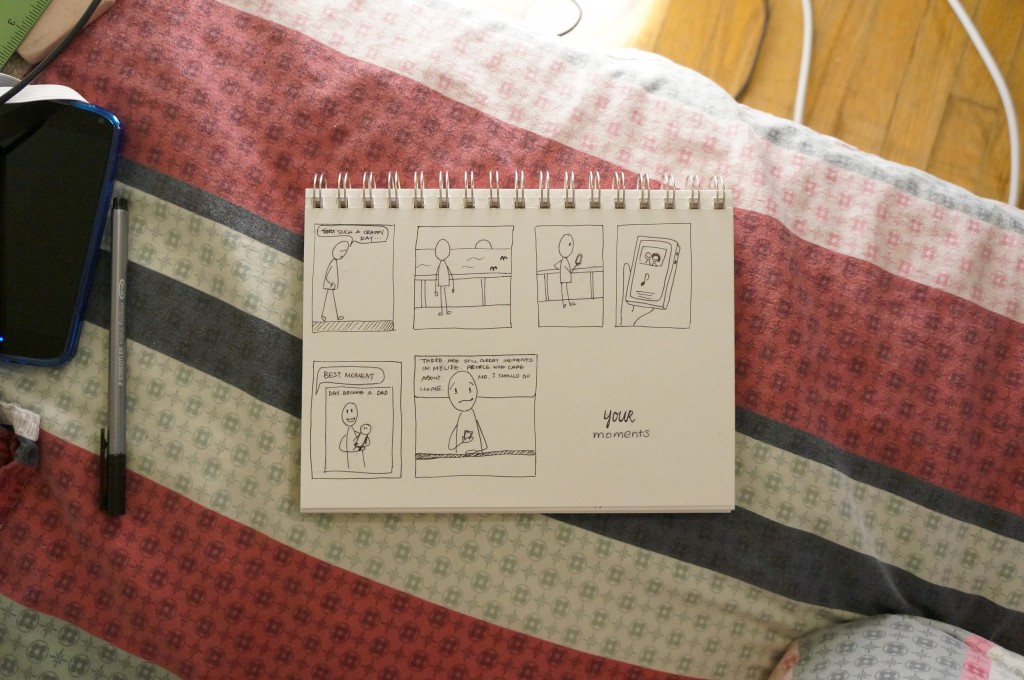 SUCH A CRAPPY
DAY...
BEST MOMENT
DAY BECAME A DAD
THERE ARE STILL GREAT MOMENTS
IN MY LIFE. PEOPLE WHO CARE
ABOUT ME. I SHOULD GO
HOME.
your
moments
STAEDTLER
3